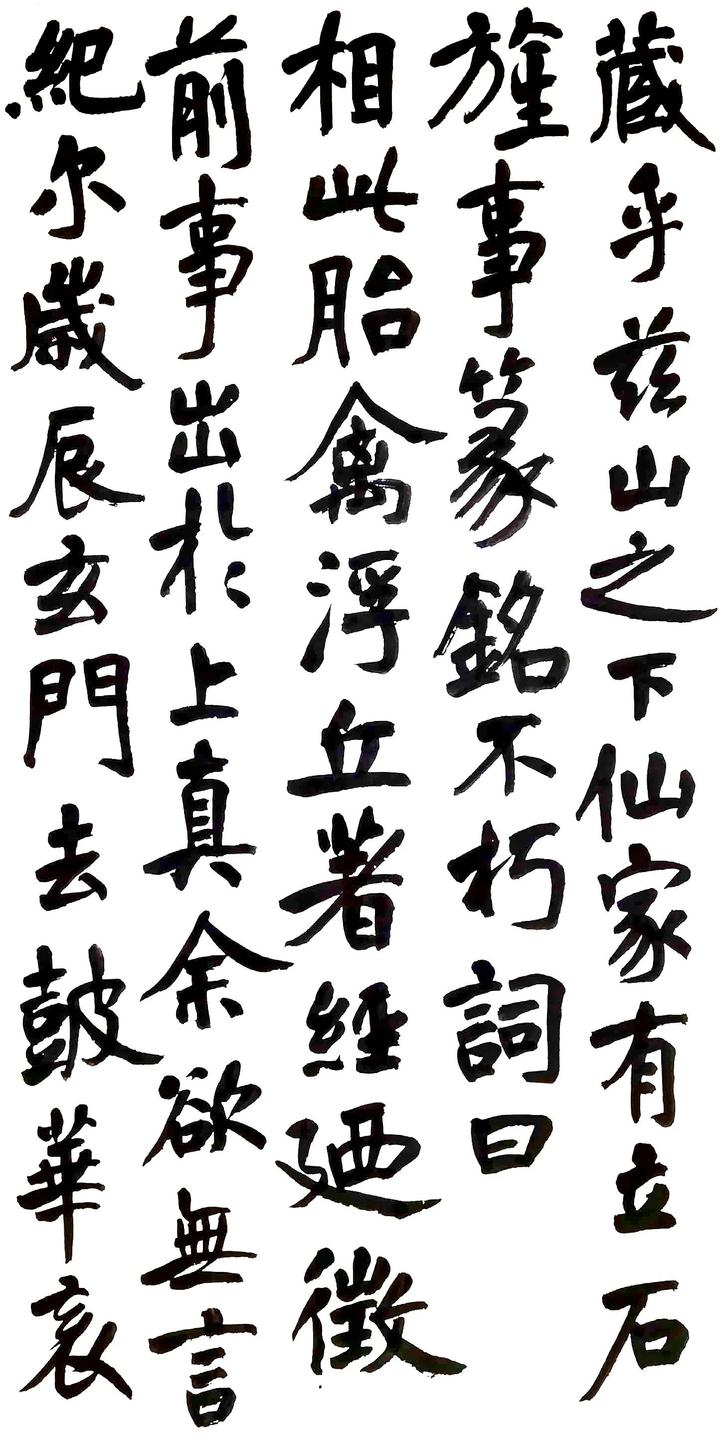 藏乎兹山之下仙家有立石
旌事篆銘不朽詞曰
相此胎禽浮丘著經廼徵
前事出於上真余欲無言
紀尔歲辰玄門去鼓華表